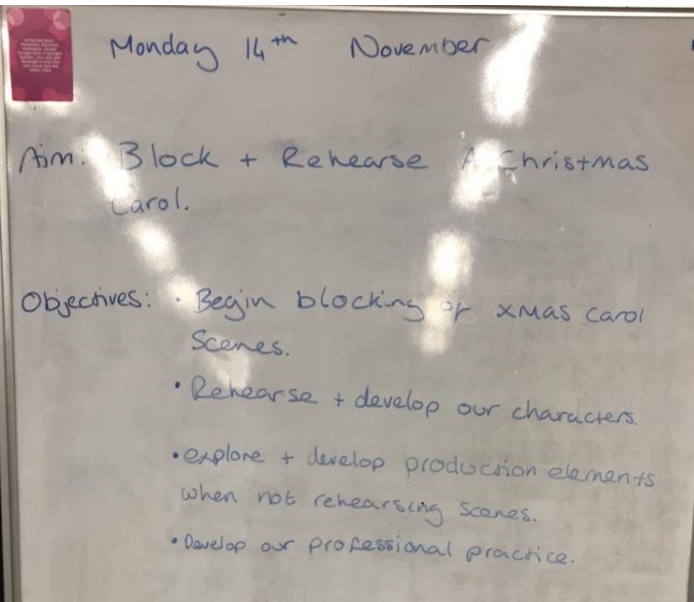 Monday 14th November
Aim: Block + Rehearse A Christmas
Carol.
Objectives: • Begin blocking of xmas carol
Scenes.
• Rehearse + develop our characters.
• explore + develop production elements
when not rehearsing scenes.
• Develop our professional practice.